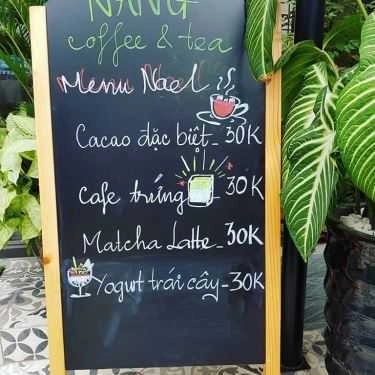 NẮNG
coffee & tea
Menu Noel
Cacao đặc biệt - 30K
Cafe trứng 30K
Matcha Latte - 30K
Yogut trái cây - 30K